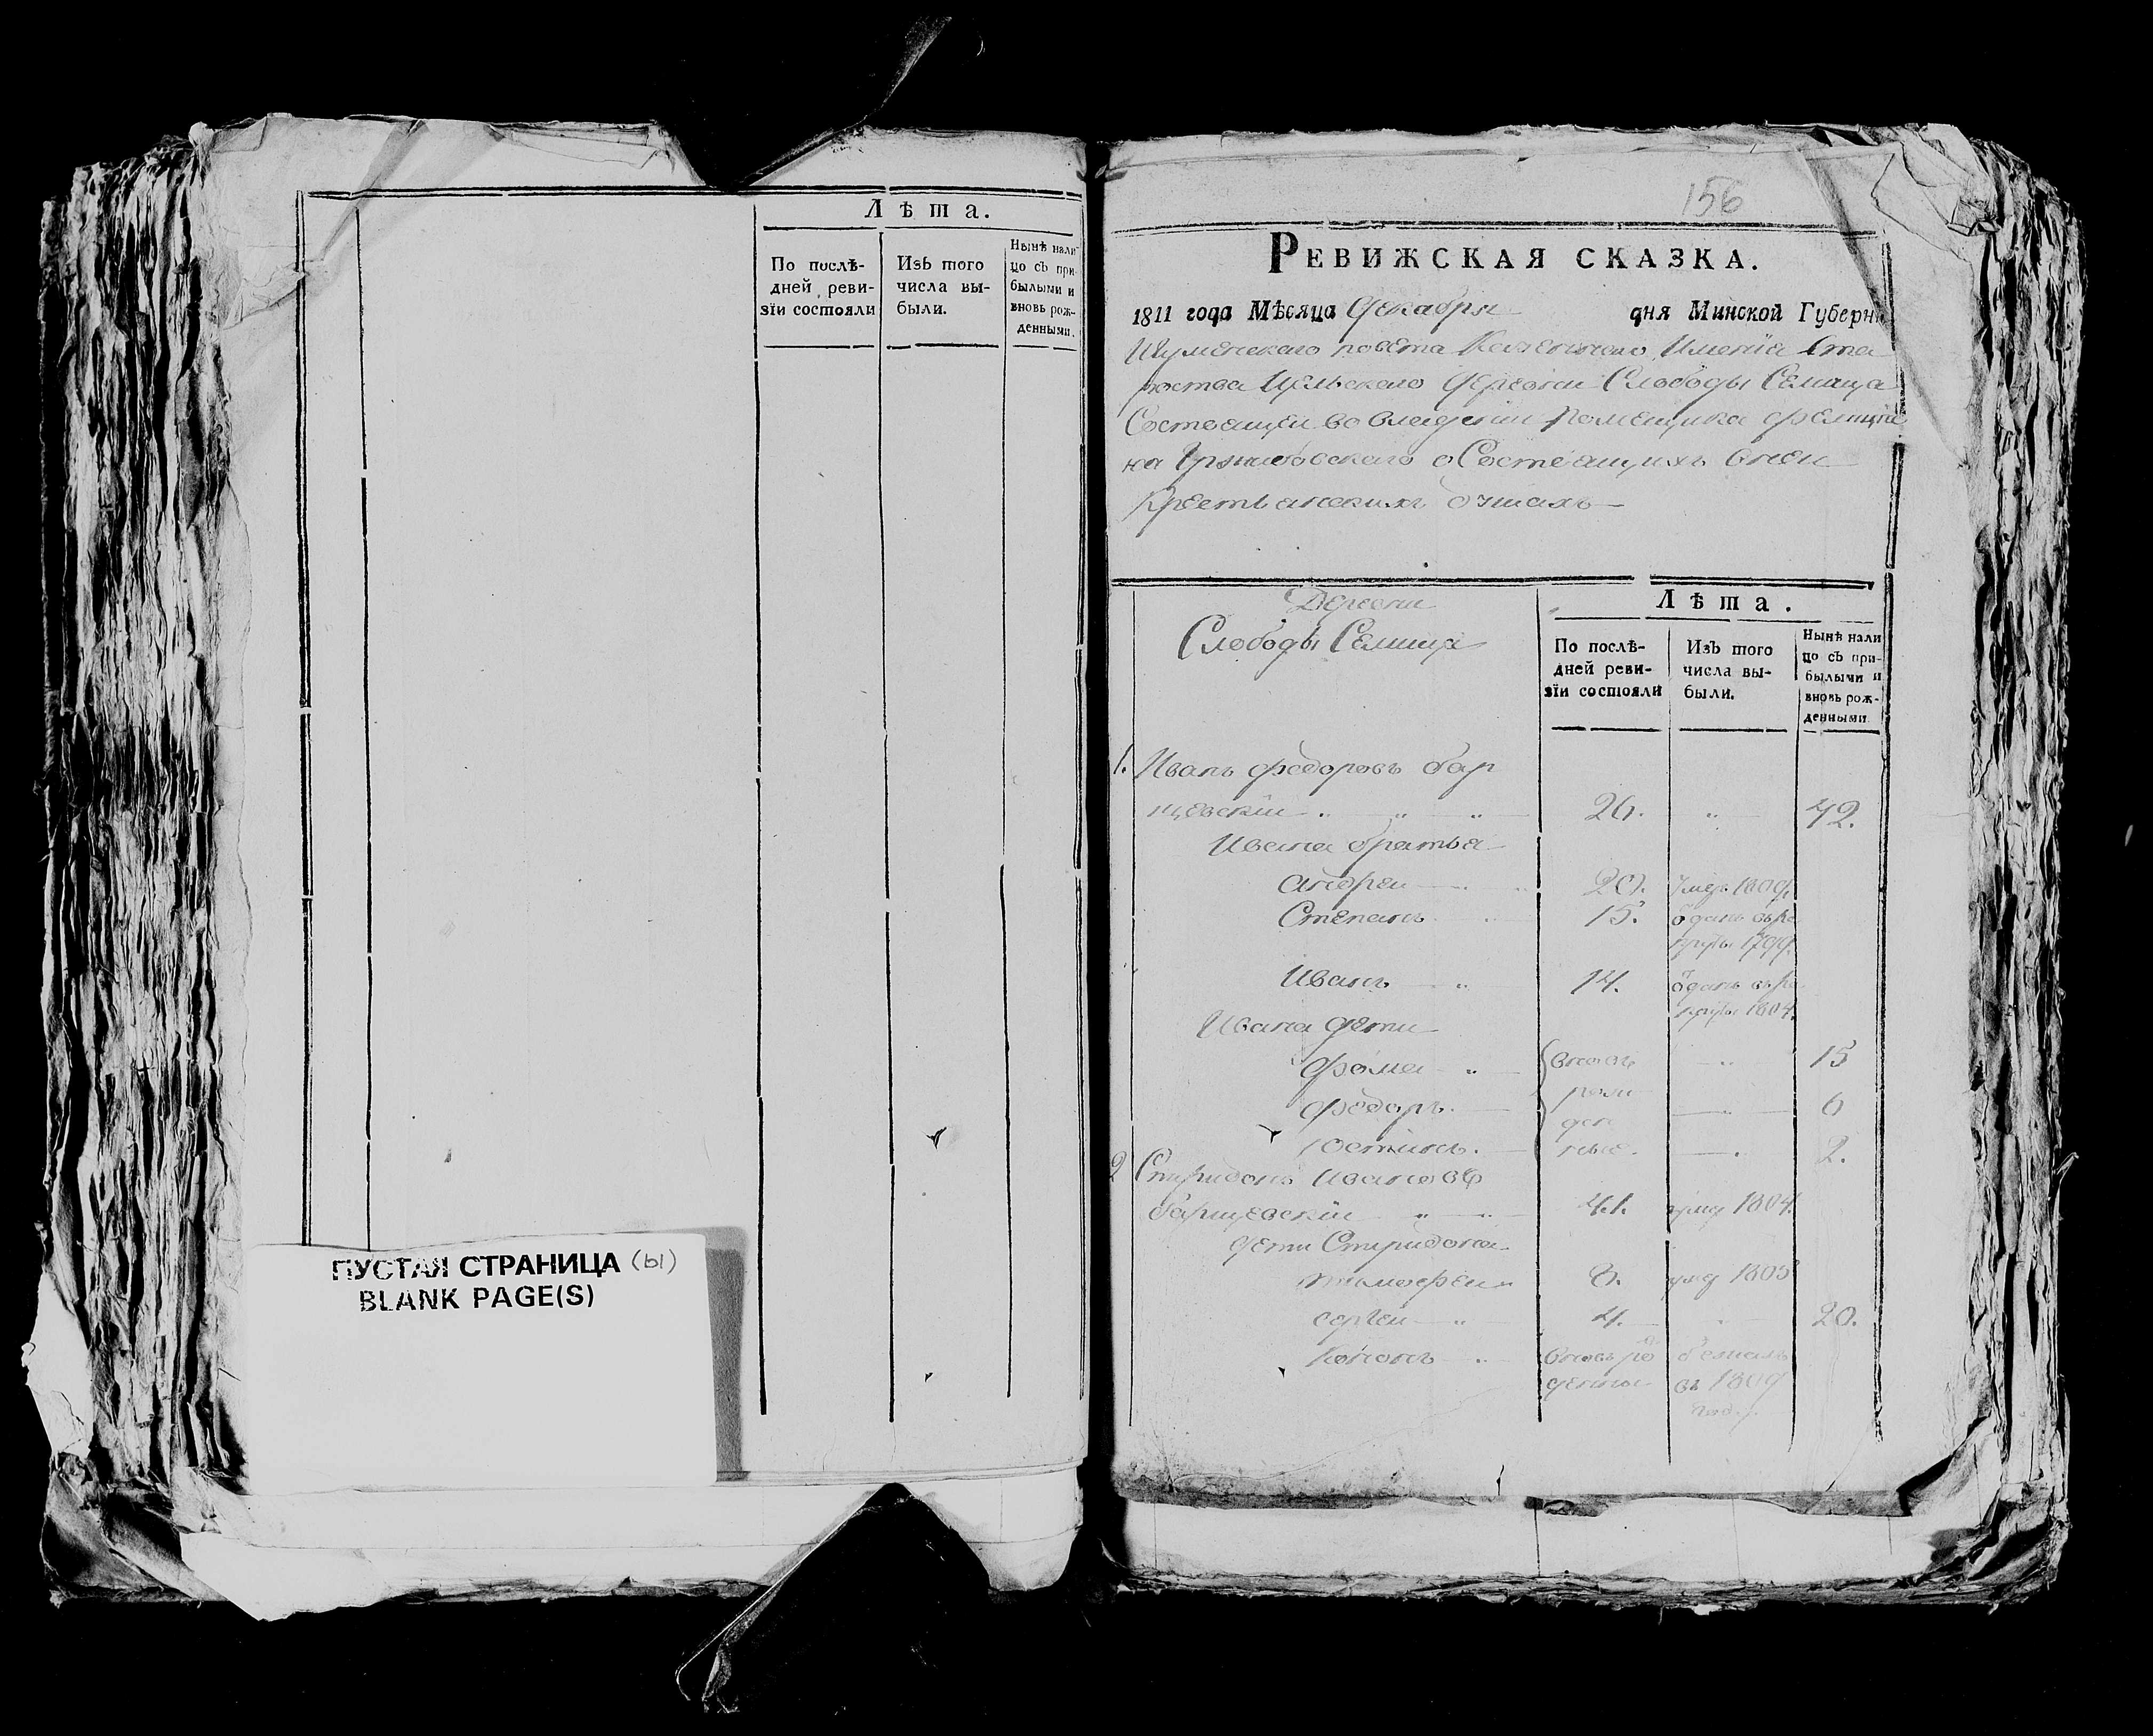 Лѣта.
По послѣ-
дней реви-
зїи состояли
Изъ того
числа вы-
были.
Нынѣ нали-
цо съ при-
былыми и
вновь рож-
денными.
ПУСТАЯ СТРАНИЦА (ы)
BLANK PAGE(S)
156
РЕВИЖСКАЯ СКАЗКА.
1811 года Мѣсяца Декабря дня Минской Губерни
Игуменскаго повета Казеннаго Имения Ста
роства Цельскаго Деревни Слободы Селища
Состоящей во владении Помещика
на о Состоящихъ вней
Крестьянскихъ душахъ
Деревни
Слободы Селища
Лѣта.
По послѣ-
дней реви-
зїи состояли
Изъ того
числа вы-
были.
Нынѣ нали
цо съ при-
былыми и
вновь рож-
денными
1. Иванъ Федоровъ бар
щевскïи 26. 42.
Ивана братья
Андреи 20. умер. 1809.
Степанъ 15. одданъ вре
круты 1799.
Иванъ 14. одданъ вре
круты 1804.
Ивана дети
Фома вновь 15
Федоръ рож 6
ден
Юстинъ. ные. 2.
2 Спиридонъ Ивановъ
барщевскïи 41. умер 1804.
дети Спиридона
тимофеи 8. умер 1805
сергеи 4. 20.
Кононъ вновь ро
денны въ 1809
год.